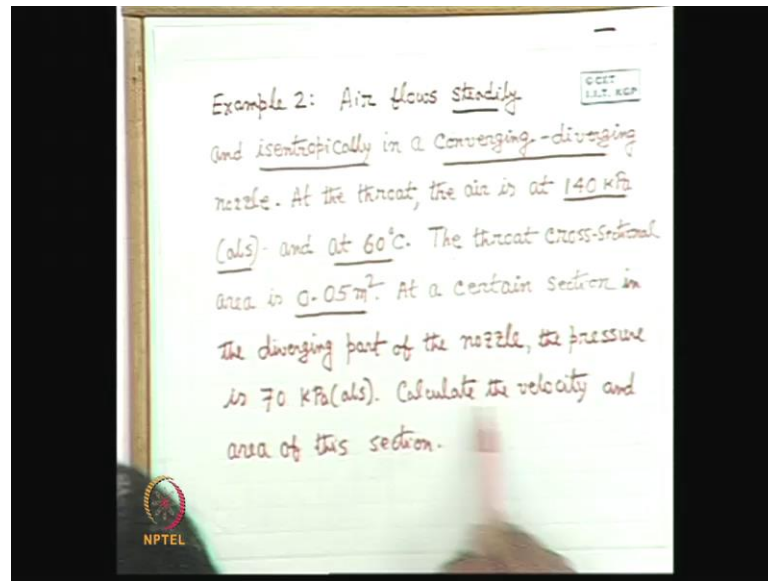 Example 2: Air flows steadily
C CET
I.I.T. KGP
and isentropically in a Converging-diverging
nozzle. At the throat, the air is at 140 kPa
(abs). and at 60°C. The throat cross-sectional
area is 0.05 m². At a certain section in
the diverging part of the nozzle, the pressure
is 70 kPa(abs). Calculate the velocity and
area of this section.
NPTEL